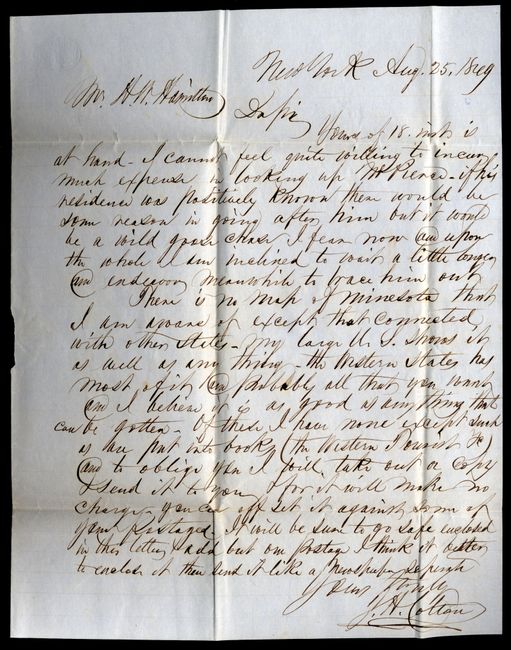 New York Aug. 25, 1849
Mr. H. W. Hamilton
Dr Sir
Yours of 18. inst is
at hand - I cannot feel quite willing to incur
much expense in looking up Mr Pierce - if his
residence was positively known there would be
some reason in going after him but it would
be a wild goose chase I fear now and upon
the whole I am inclined to wait a little longer
and endeavor meanwhile to trace him out
There is no map of Minesota that
I am aware of except that connected
with other States - my large U. S. shows it
as well as any thing - the Western States has
most of it and probably all that you want
and I believe it is as good as anything that
can be gotten - Of these I have none except such
as are put into books (the Western Tourist &c)
and to oblige you I will take out a copy
& send it to you & for it will make no
charge - you can off set it against some of
your Postages. It will be sure to go safe enclosed
in this letter & add but one postage I think it better
to enclose it then send it like a Newspaper
Yours Truly
J. H. Colton